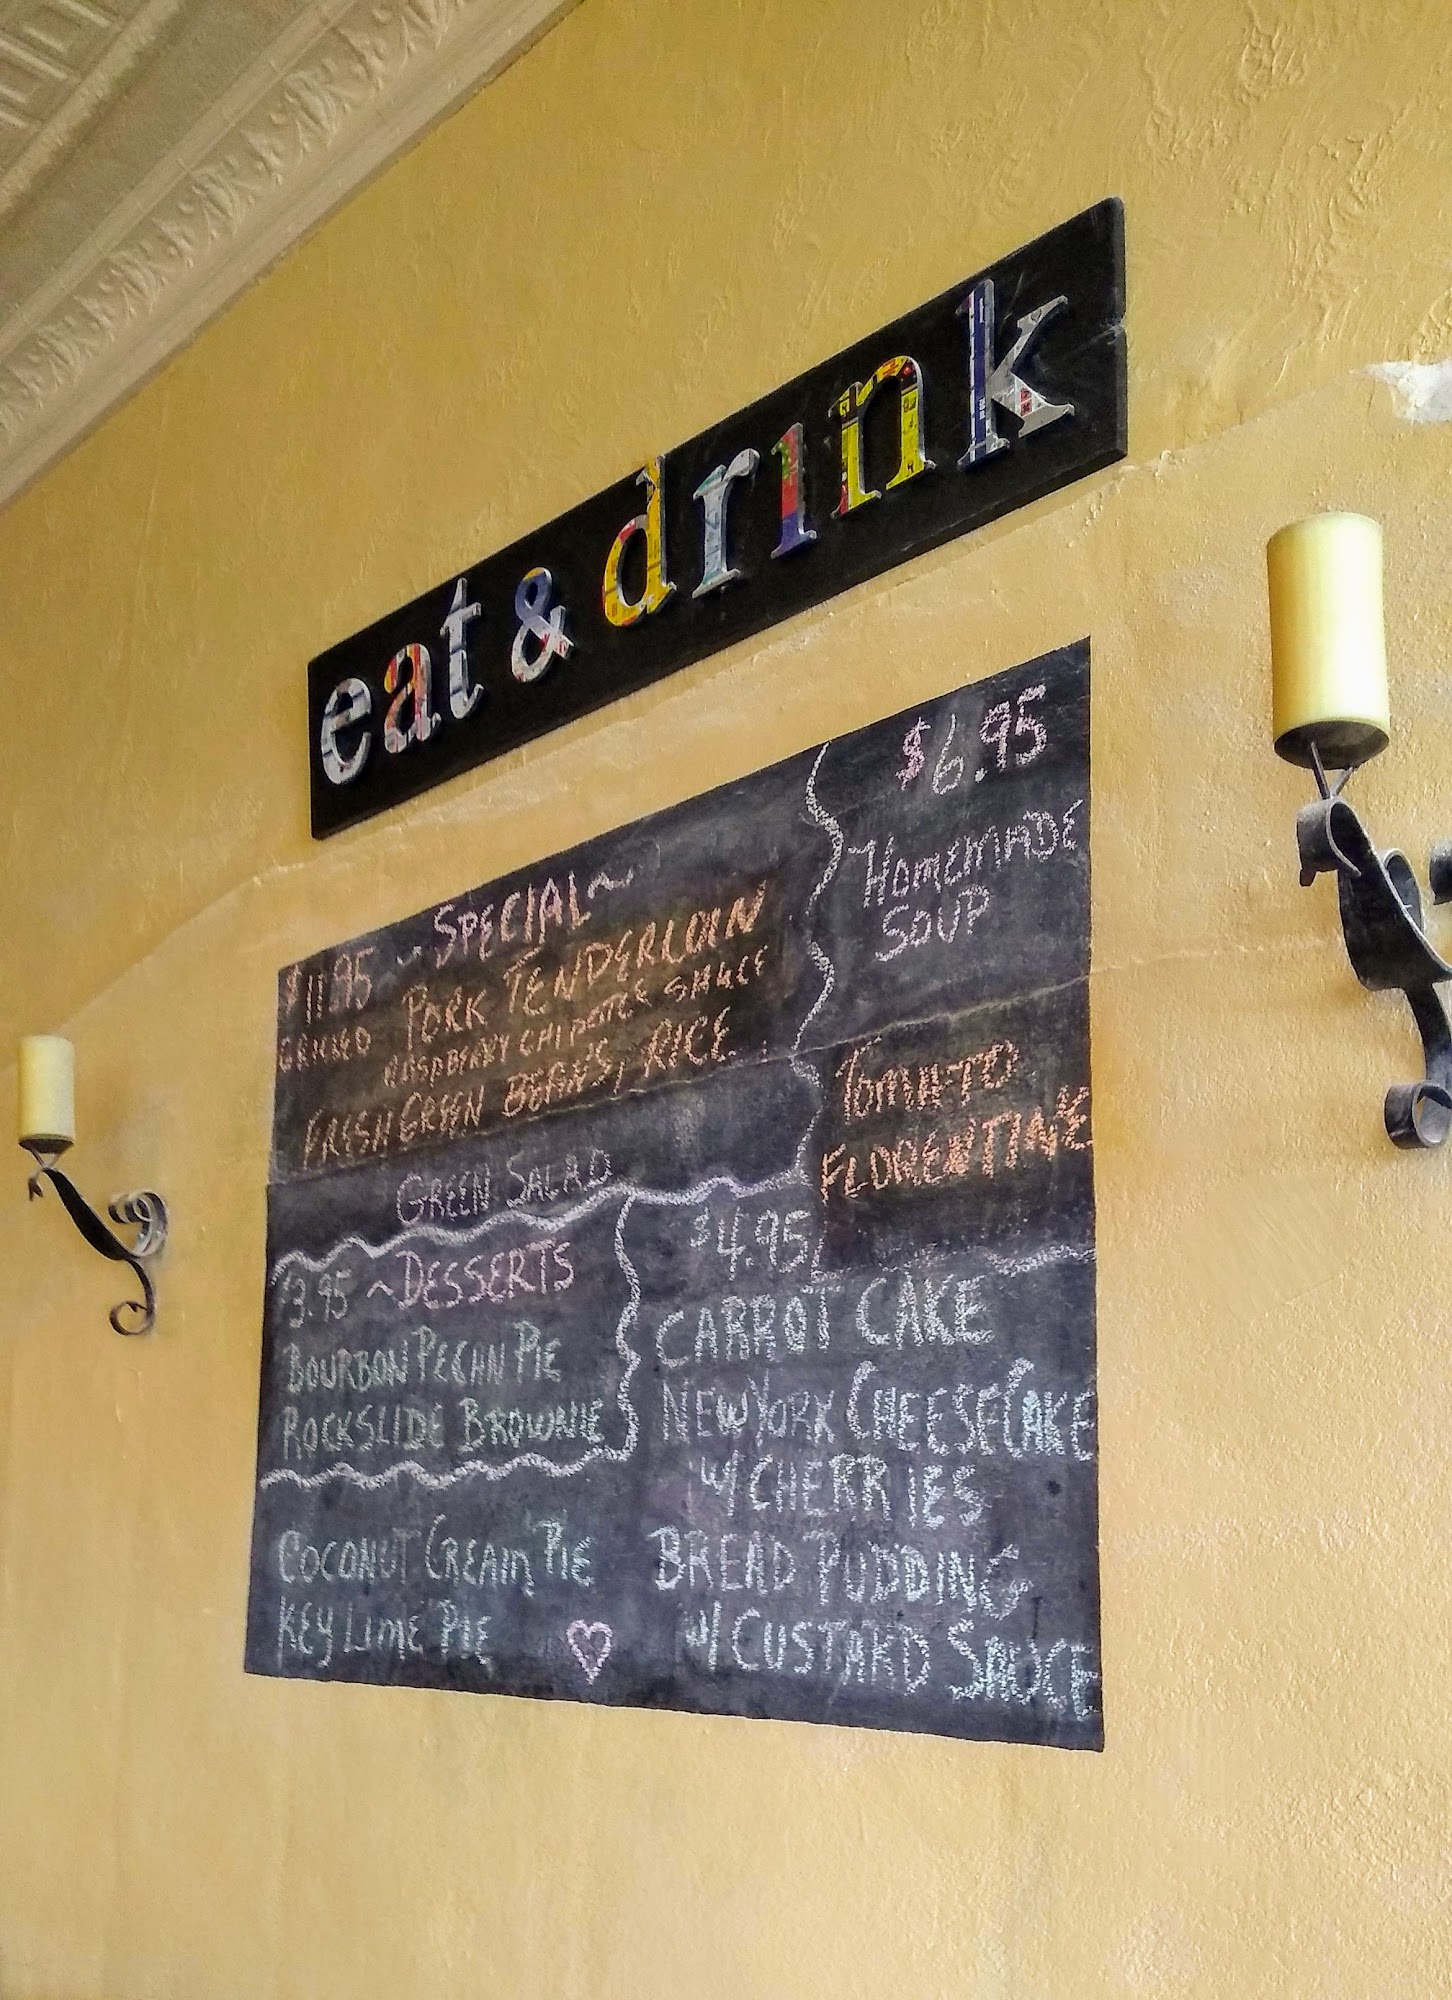 eat & drink
~SPECIAL~
$11.95
GRILLED PORK TENDERLOIN
RASPBERRY CHIPOTLE SAUCE
FRESH GREEN BEANS, RICE
GREEN SALAD
$6.95
HOMEMADE
SOUP
TOMATO
FLORENTINE
3.95 ~DESSERTS
BOURBON PECAN PIE
ROCKSLIDE BROWNIE
COCONUT CREAM PIE
KEY LIME PIE
$4.95
CARROT CAKE
NEW YORK CHEESECAKE
W/ CHERRIES
BREAD PUDDING
W/ CUSTARD SAUCE